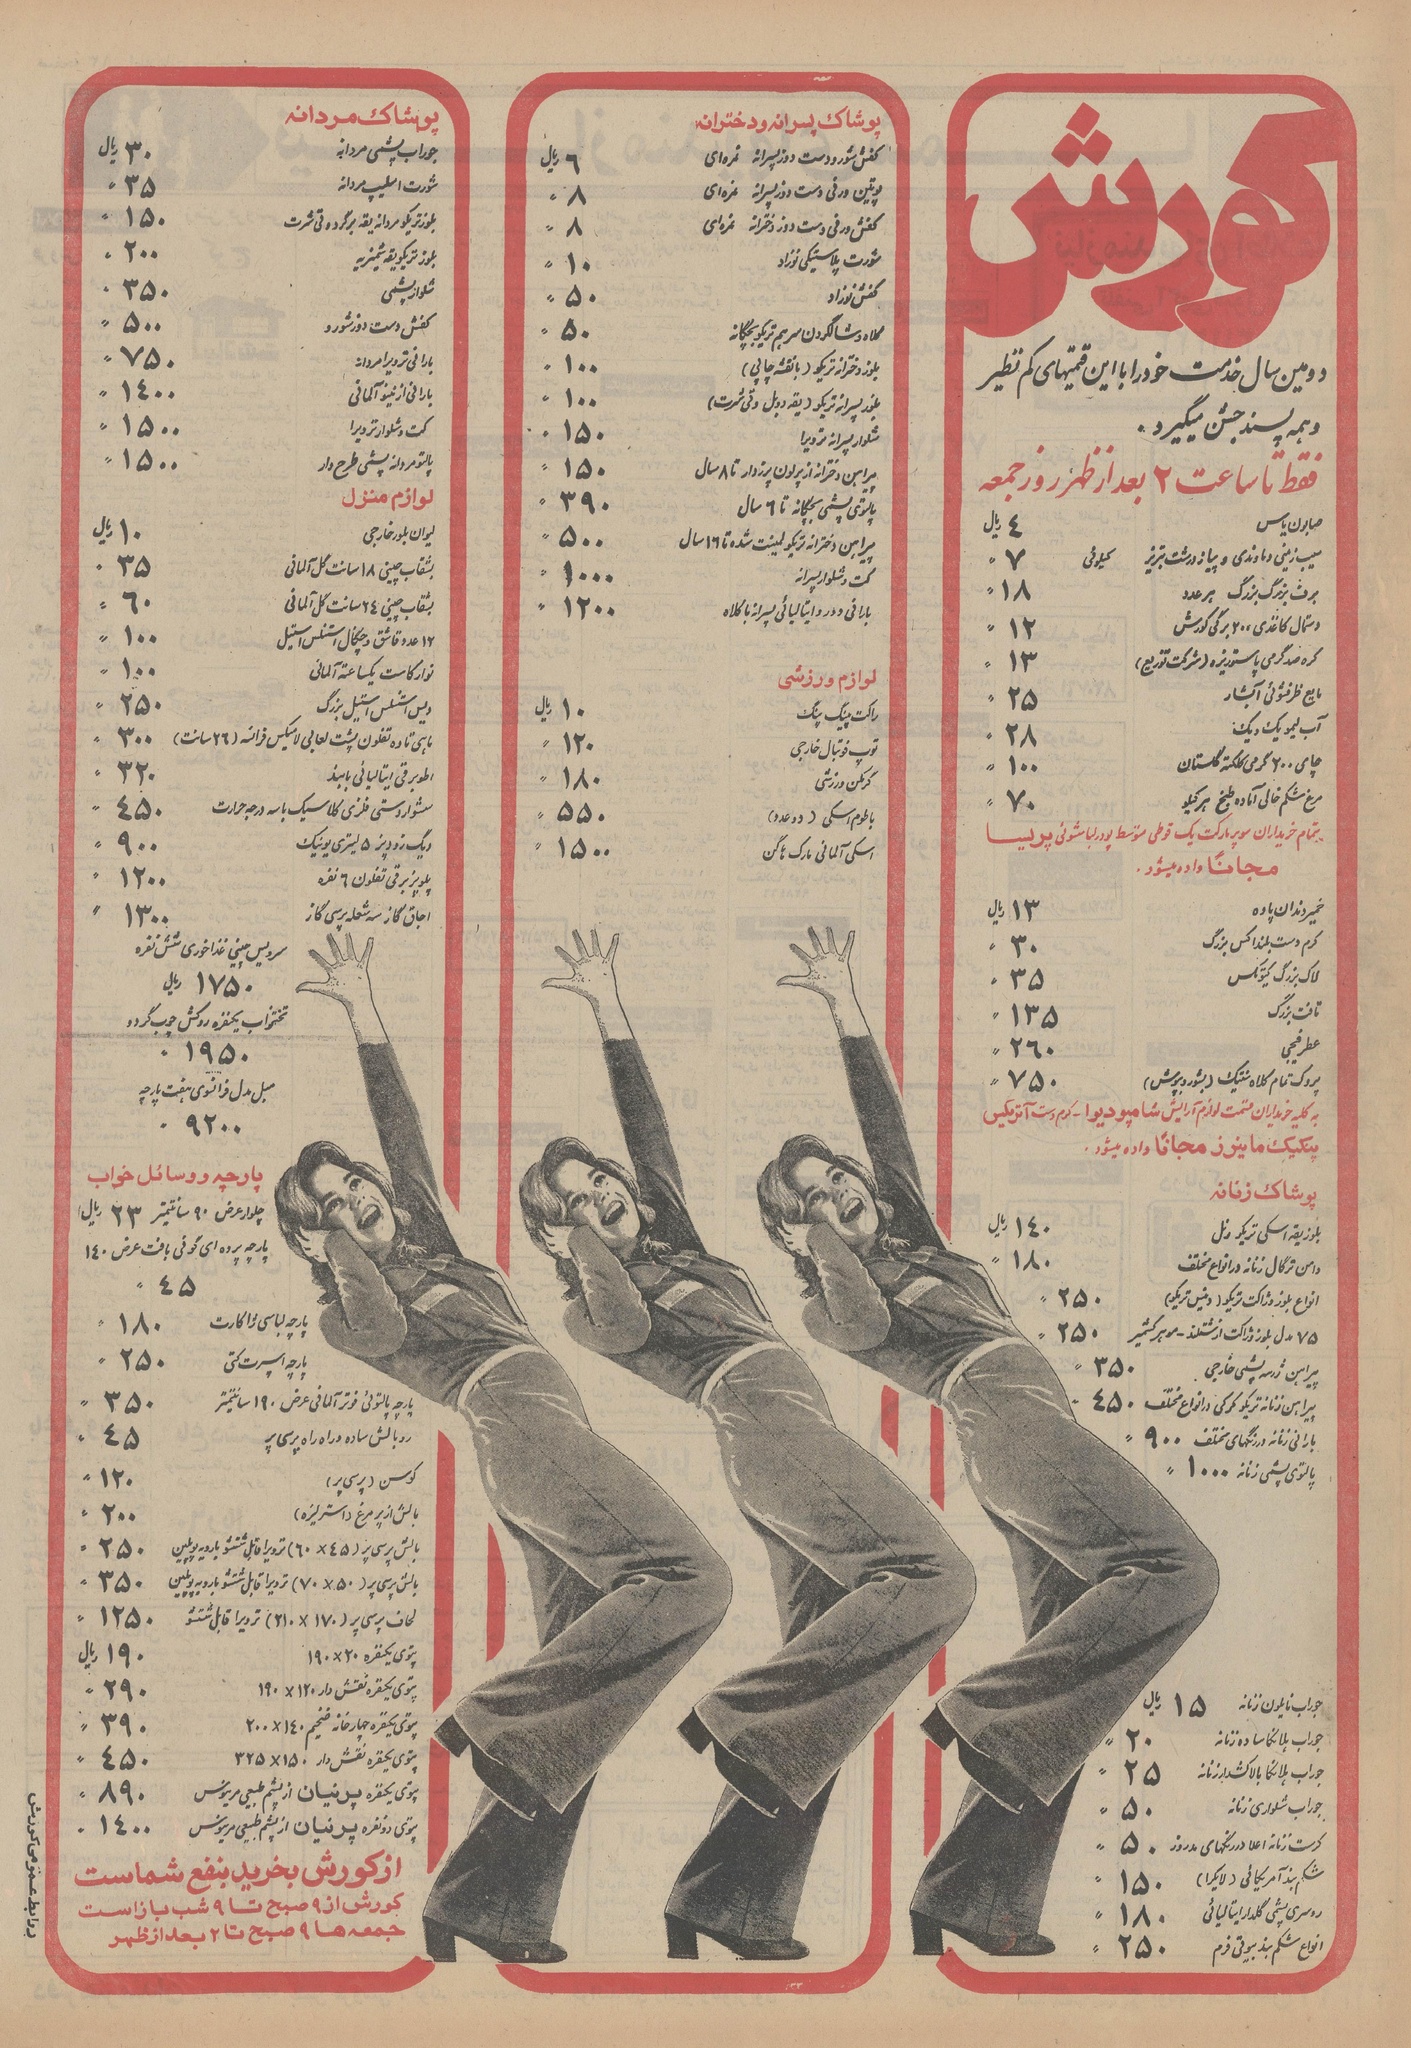 کورش
دومین سال خدمت خود را با این قیمتهای کم نظیر
و همه پسند جشن میگیرد.
فقط تا ساعت ۲ بعد از ظهر روز جمعه
صابون یاس ۴ ریال
سیب زمینی دماوندی و پیاز درشت تبریز کیلوئی ۷ »
برف بزرگ بزرگ هر عدد ۱۸ »
دستمال کاغذی ۲۰۰ برگی کورش ۱۲ »
کره صد گرمی پاستوریزه (شرکت توزیع) ۱۳ »
مایع ظرفشوئی آبشار ۲۵ »
آب لیمو یک و یک ۲۸ »
چای ۲۰۰ گرمی کلکته گلستان ۱۰۰ »
مرغ شکم خالی آماده طبخ هر کیلو ۷۰ »
بتمام خریداران سوپر مارکت یک قوطی متوسط پودر لباسشوئی پریسا
مجاناً داده میشود.
خمیر دندان پاوه ۱۳ ریال
کرم دست بلنداکس بزرگ ۳۰ »
لاک بزرگ کیوتکس ۳۵ »
تافت بزرگ ۱۳۵ »
عطر فیجی ۲۶۰ »
پروک تمام کلاه سنتتیک (بشور و بپوش) ۷۵۰ »
به کلیه خریداران قسمت لوازم آرایش شامپو دیوا - کرم دست آتریکس
پنکیک ماینرز مجاناً داده میشود.
پوشاک زنانه
بلوز یقه اسکی تریکو رنل ۱۴۰ ریال
دامن ترگال زنانه در انواع مختلف ۱۸۰ »
انواع بلوز و ژاکت تریکو (ونیس تریکو) ۲۵۰ »
۷۵ مدل بلوز و ژاکت از شتلند - موهر کشمیر ۲۵۰ »
پیراهن ژرسه پشمی خارجی ۳۵۰ »
پیراهن زنانه تریکو کرکی در انواع مختلف ۴۵۰ »
بارانی زنانه در رنگهای مختلف ۹۰۰ »
پالتوی پشمی زنانه ۱۰۰۰ »
جوراب نایلون زنانه ۱۵ ریال
جوراب هلانکا ساده زنانه ۲۰ »
جوراب هلانکا بالا کشدار زنانه ۲۵ »
جوراب شلواری زنانه ۵۰ »
کرست زنانه اعلا در رنگهای مد روز ۵۰ »
شکم بند آمریکائی (لایکرا) ۱۵۰ »
روسری پشمی گلدار ایتالیائی ۱۸۰ »
انواع شکم بند بیوتی فرم ۲۵۰ »
پوشاک پسرانه و دخترانه
کفش شورو دست دوز پسرانه نمره‌ای ۶ ریال
پوتین ورنی دست دوز پسرانه نمره‌ای ۸ »
کفش ورنی دست دوز دخترانه نمره‌ای ۸ »
شورت پلاستیکی نوزاد ۱۰ »
کفش نوزاد ۵۰ »
کلاه و شالگردن سرهم تریکو بچگانه ۵۰ »
بلوز دخترانه تریکو (با نقشه چاپی) ۱۰۰ »
بلوز پسرانه تریکو (یقه دوبل و تی شرت) ۱۰۰ »
شلوار پسرانه ترویرا ۱۵۰ »
پیراهن دخترانه از پرلون پرزدار تا ۸ سال ۱۵۰ »
پالتوی پشمی بچگانه تا ۶ سال ۳۹۰ »
پیراهن دخترانه تریکو لمینت شده تا ۱۶ سال ۵۰۰ »
کت و شلوار پسرانه ۱۰۰۰ »
بارانی دو رو ایتالیائی پسرانه با کلاه ۱۲۰۰ »
لوازم ورزشی
راکت پینگ پنگ ۱۰ ریال
توپ فوتبال خارجی ۱۲۰ »
گرمکن ورزشی ۱۸۰ »
باطوم اسکی (دو عدد) ۵۵۰ »
اسکی آلمانی مارک هاگن ۱۵۰۰ »
پوشاک مردانه
جوراب پشمی مردانه ۳۰ ریال
شورت اسلیپ مردانه ۳۵ »
بلوز تریکو مردانه یقه برگرد و تی شرت ۱۵۰ »
بلوز تریکو یقه شمیزیه ۲۰۰ »
شلوار پشمی ۳۵۰ »
کفش دست دوز شورو ۵۰۰ »
بارانی ترویرا مردانه ۷۵۰ »
بارانی از نینو آلمانی ۱۴۰۰ »
کت و شلوار ترویرا ۱۵۰۰ »
پالتو مردانه پشمی طرح دار ۱۵۰۰ »
لوازم منزل
لیوان بلور خارجی ۱۰ ریال
بشقاب چینی ۱۸ سانت گل آلمانی ۳۵ »
بشقاب چینی ۲۴ سانت گل آلمانی ۶۰ »
۱۲ عدد قاشق و چنگال استنلس استیل ۱۰۰ »
نوار کاست یکساعته آلمانی ۱۰۰ »
دیس استنلس استیل بزرگ ۲۵۰ »
ماهی تاوه تفلون پشت لعابی لامیکس فرانسه (۲۶ سانت) ۳۰۰ »
اطو برقی ایتالیائی با بند ۳۲۰ »
سشوار دستی فلزی کلاسیک با سه درجه حرارت ۴۵۰ »
دیگ زودپز ۵ لیتری یونیک ۹۰۰ »
پلوپز برقی تفلون ۶ نفره ۱۲۰۰ »
اجاق گاز سه شعله پرسی گاز ۱۳۰۰ »
سرویس چینی غذاخوری شش نفره
۱۷۵۰ ریال
تختخواب یکنفره روکش چوب گردو
۱۹۵۰ »
مبل مدل فرانسوی هفت پارچه
۹۲۰۰ »
پارچه و وسائل خواب
چلوار عرض ۹۰ سانتیمتر ۲۳ ریال
پارچه پرده ای گونی بافت عرض ۱۴۰
۴۵ »
پارچه لباسی ژاکارت ۱۸۰ »
پارچه اسپرت کتی ۲۵۰ »
پارچه پالتوئی فوتر آلمانی عرض ۱۹۰ سانتیمتر ۳۵۰ »
روبالش ساده و راه راه پرسی پر ۴۵ »
کوسن (پرسی پر) ۱۲۰ »
بالش از پر مرغ (استرلیزه) ۲۰۰ »
بالش پرسی پر (۴۵ × ۶۰) ترویرا قابل شستشو با رویه پوپلین ۲۵۰ »
بالش پرسی پر (۵۰ × ۷۰) ترویرا قابل شستشو با رویه پوپلین ۳۵۰ »
لحاف پرسی پر (۱۷۰ × ۲۱۰) ترویرا قابل شستشو ۱۲۵۰ »
پتوی یکنفره ۲۰×۱۹۰ ۱۹۰ ریال
پتوی یکنفره نقش دار ۱۲۰ × ۱۹۰ ۲۹۰ »
پتوی یکنفره چهارخانه ضخیم ۱۴۰×۲۰۰ ۳۹۰ »
پتوی یکنفره نقش دار ۱۵۰×۳۲۵ ۴۵۰ »
پتوی یکنفره پرنیان از پشم طبیعی مرینوس ۸۹۰ »
پتوی دو نفره پرنیان از پشم طبیعی مرینوس ۱۴۰۰ »
از کورش بخرید بنفع شماست
کورش از ۹ صبح تا ۹ شب باز است
جمعه ها ۹ صبح تا ۲ بعد از ظهر
روابط عمومی کورش